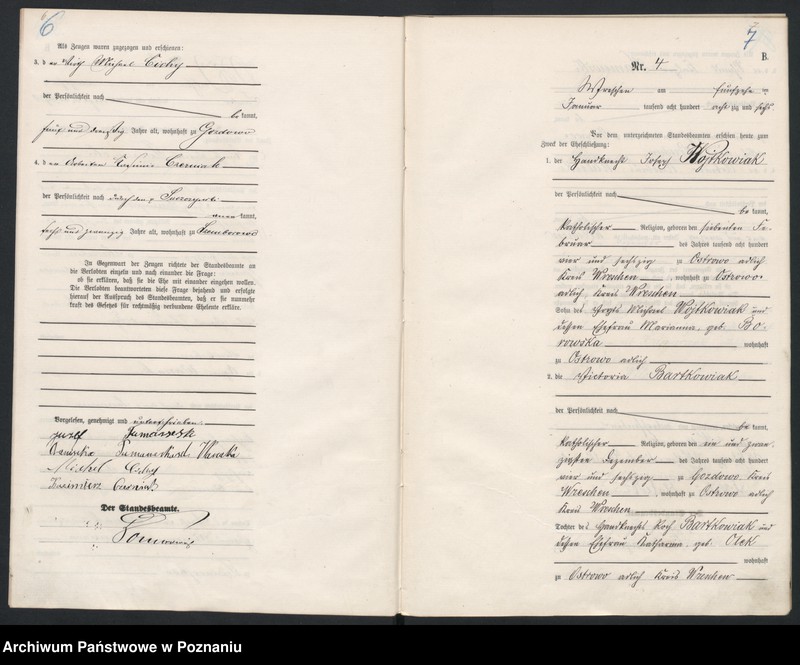 6
Als Zeugen waren zugezogen und erschienen:
3. d er Vogt Michael Cichy
der Persönlichkeit nach
be kannt,
fünf und dreißig Jahre alt, wohnhaft zu Gozdowo
4. d er Arbeiter Kasimir
der Persönlichkeit nach durch den p.
aner kannt,
sechs und zwanzig Jahre alt, wohnhaft zu Samborowo
In Gegenwart der Zeugen richtete der Standesbeamte an
die Verlobten einzeln und nach einander die Frage:
ob sie erklären, daß sie die Ehe mit einander eingehen wollen.
Die Verlobten beantworteten diese Frage bejahend und erfolgte
hierauf der Ausspruch des Standesbeamten, daß er sie nunmehr
kraft des Gesetzes für rechtmäßig verbundene Eheleute erkläre.
Vorgelesen, genehmigt und unterschrieben
Józef
Michał Cichy
Kazimierz
Der Standesbeamte.
7
B.
Nr. 4
Wreschen am fünfzehn ten
Januar tausend acht hundert acht zig und sechs
Vor dem unterzeichneten Standesbeamten erschien heute zum
Zweck der Eheschließung:
1. der Handknecht Joseph Wojtkowiak
der Persönlichkeit nach
be kannt,
katholischer Religion, geboren den siebenten Fe-
bruar des Jahres tausend acht hundert
vier und sechszig zu Ostrowo adlich
Kreis Wreschen, wohnhaft zu Ostrowo
adlich Kreis Wreschen
Sohn des Vogts Michael Wojtkowiak und
dessen Ehefrau Marianna, geb. Bo-
rowska wohnhaft
zu Ostrowo adlich
2. die Victoria Bartkowiak
der Persönlichkeit nach
be kannt,
katholischer Religion, geboren den ein und zwan-
zigsten Dezember des Jahres tausend acht hundert
vier und sechszig zu Gozdowo Kreis
Wreschen, wohnhaft zu Ostrowo adlich
Kreis Wreschen
Tochter des Handknechts Roch Bartkowiak und
dessen Ehefrau Katharina, geb. Olek
wohnhaft
zu Ostrowo adlich Kreis Wreschen
Archiwum Państwowe w Poznaniu